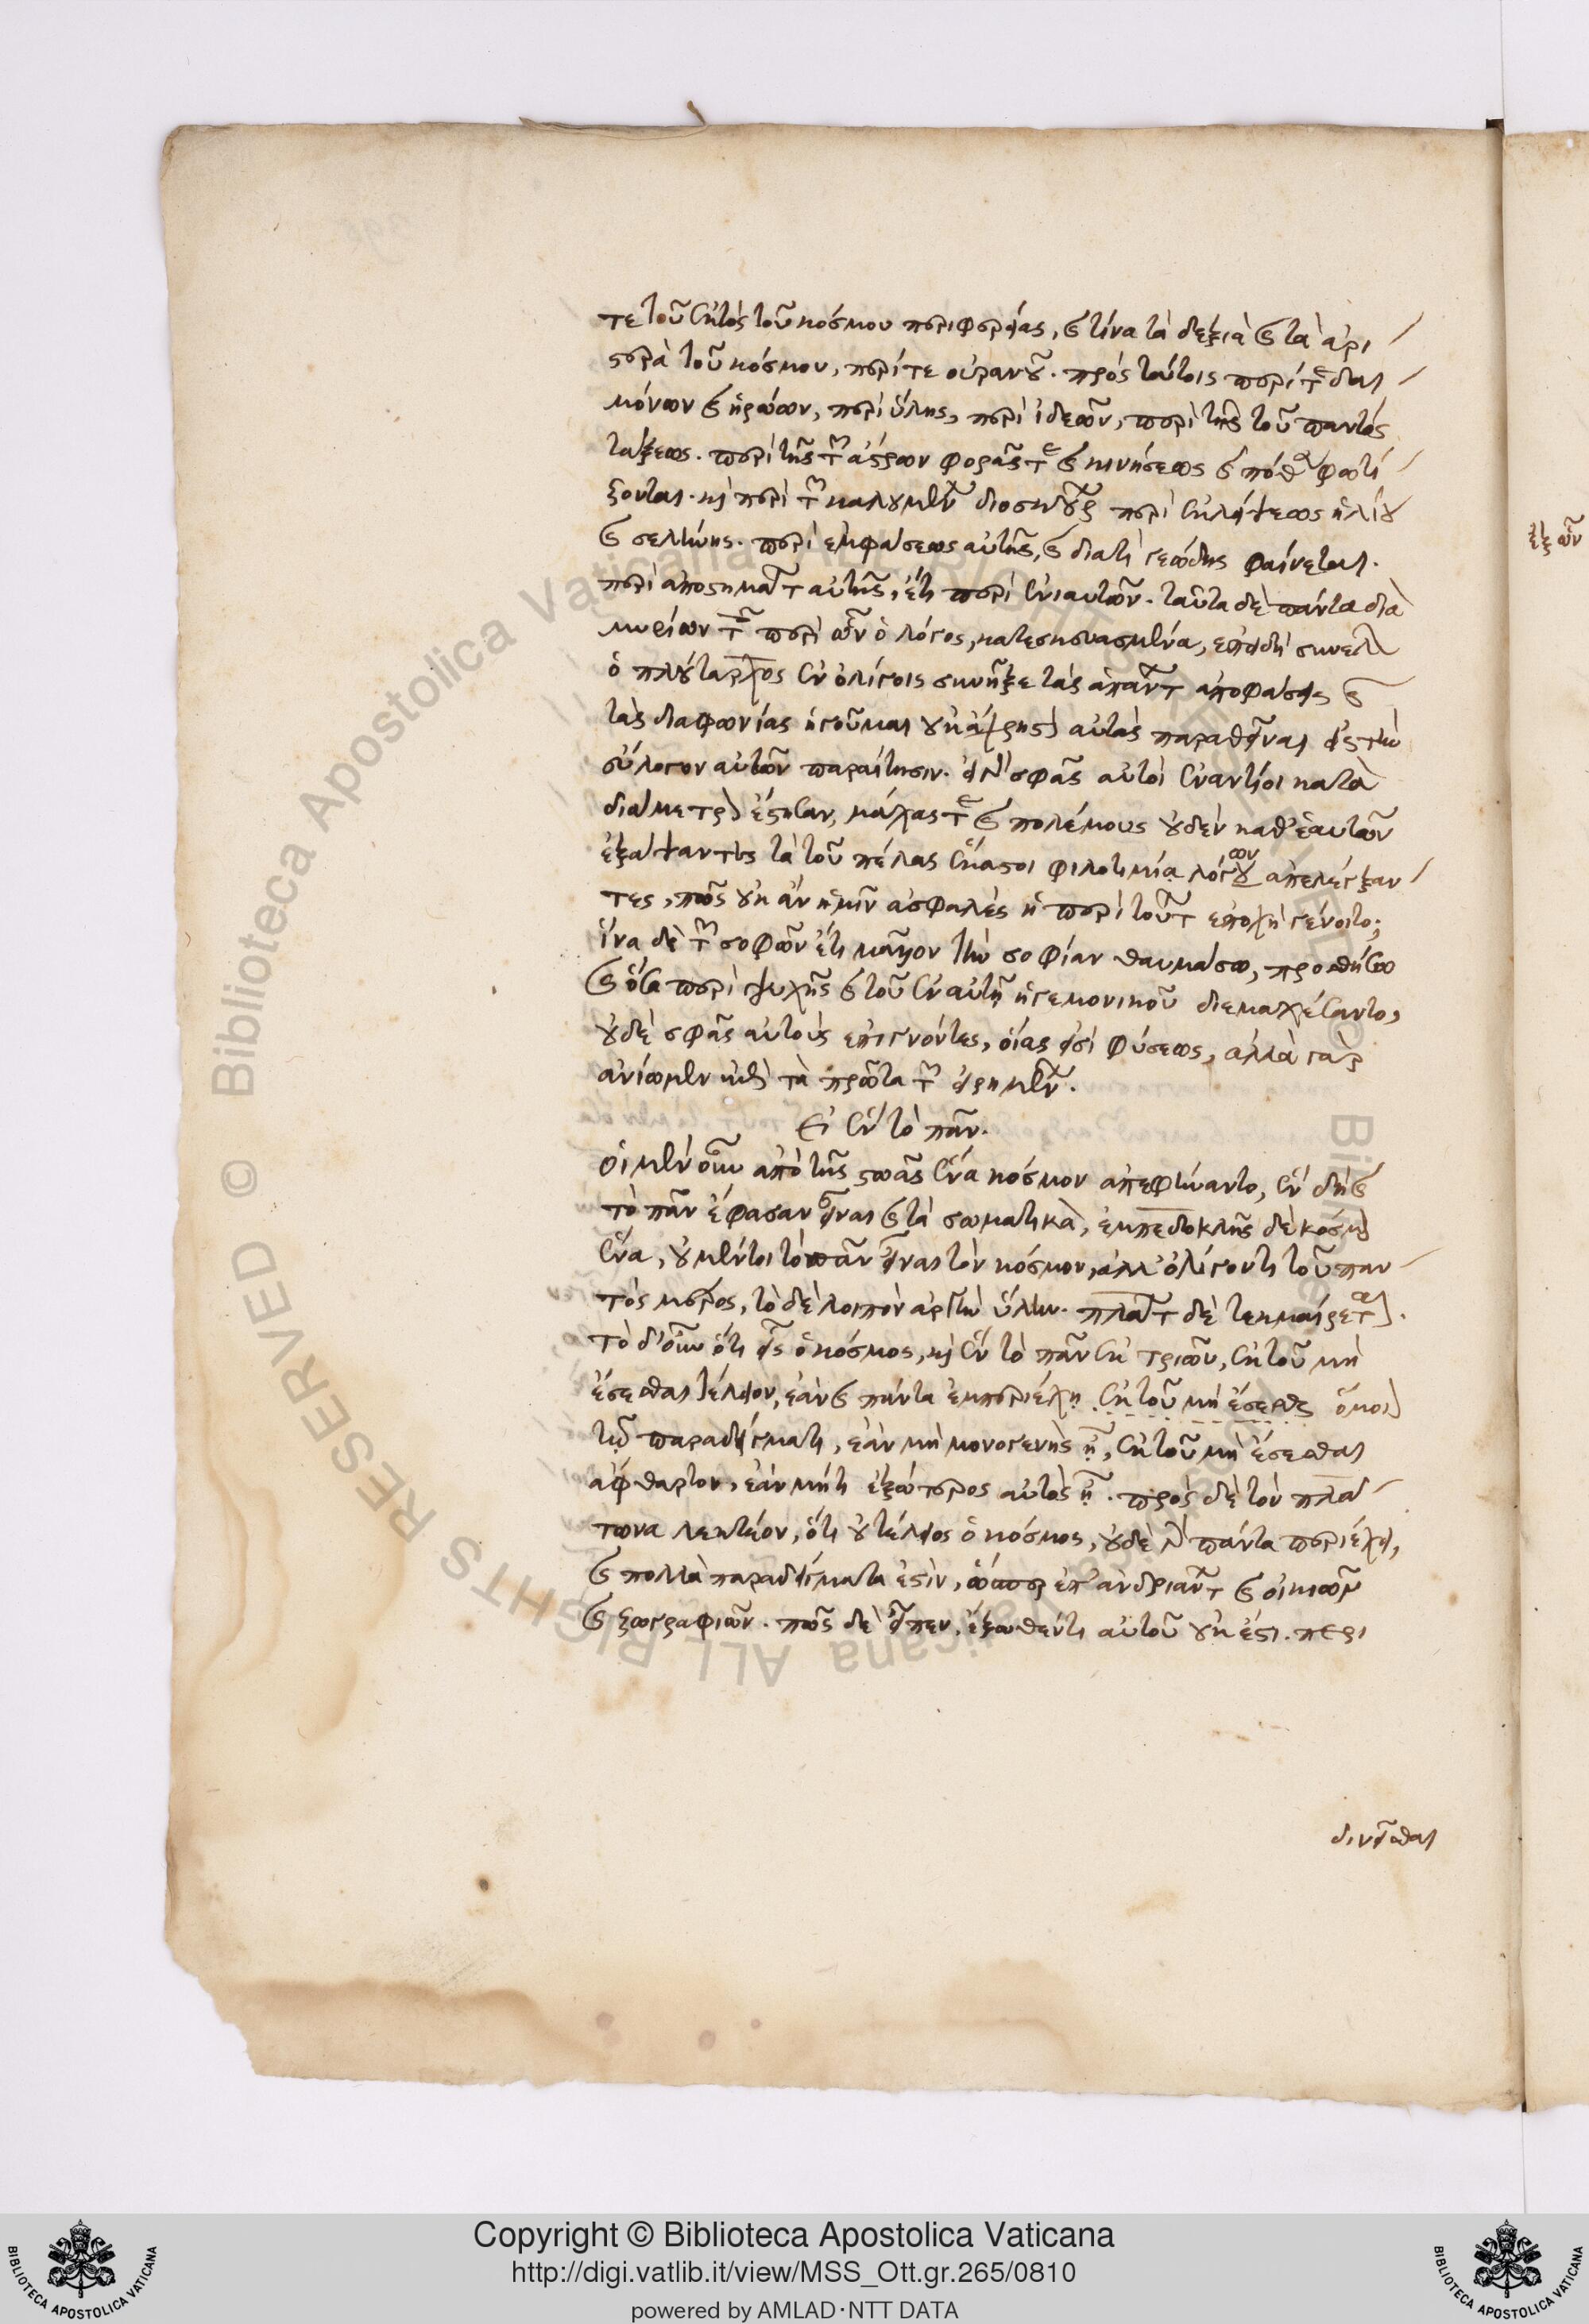 τε τοῦ ἐκτὸς τοῦ κόσμου περιφερείας, καὶ τίνα τὰ δεξιὰ καὶ τὰ ἀρι
στερὰ τοῦ κόσμου, περί τε οὐρανοῦ. πρὸς τούτοις περί τε δαι
μόνων καὶ ἡρώων, περὶ ὕλης, περὶ ἰδεῶν, περὶ τῆς τοῦ παντὸς
τάξεως. περὶ τῆς τῶν ἄστρων φορᾶς τε καὶ κινήσεως καὶ πόθεν φωτί
ζονται. καὶ περὶ τῶν καλουμένων διοσκούρων περὶ ἐκλείψεως ἡλίου
καὶ σελήνης. περὶ ἐμφάσεως αὐτῆς, καὶ διατί γεώδης φαίνεται.
περὶ ἀποστημάτων αὐτῆς, ἔτι περὶ ἐνιαυτῶν. ταῦτα δὲ πάντα διὰ
μυρίων τῶν περὶ ὧν ὁ λόγος, κατεσκευασμένα, ἐπειδὴ συνελὼν
ὁ πλούταρχος ἐν ὀλίγοις συνῆξε τὰς ἁπάντων ἀποφάσεις καὶ
τὰς διαφωνίας ἡγοῦμαι οὐκ ἄχρηστον αὐτὰς παραθεῖναι εἰς τὴν
εὔλογον αὐτῶν παραίτησιν. εἰ γὰρ σφᾶς αὐτοὶ ἐναντίοι κατὰ
διάμετρον ἔστησαν, μάχας τε καὶ πολέμους οὐδὲν καθ' ἑαυτῶν
ἐξάψαντες τὰ τοῦ πέλας ἕκαστοι φιλοτιμία λόγου ων ἀπελέγξαν
τες, πῶς οὐκ ἂν ἡμῖν ἀσφαλὲς ἡ περὶ τούτων ἐποχὴ γένοιτο;
ἵνα δὲ τῶν σοφῶν ἔτι μᾶλλον τὴν σοφίαν θαυμάσω, προσθήσω
καὶ ὅσα περὶ ψυχῆς καὶ τοῦ ἐν αὐτῇ ἡγεμονικοῦ διεμαχέσαντο,
οὐδὲ σφᾶς αὐτοὺς ἐπιγνόντες, οἵας εἰσὶ φύσεως, ἀλλὰ γὰρ
ἀνίωμεν ἐπὶ τὰ πρῶτα τῶν εἰρημένων.
Εἰ ἓν τὸ πᾶν.
οἱ μὲν οὖν ἀπὸ τῆς στοᾶς ἕνα κόσμον ἀπεφήναντο, ὃν δὴ καὶ
τὸ πᾶν ἔφασαν εἶναι καὶ τὰ σωματικὰ, ἐμπεδοκλῆς δὲ κόσμον
ἕνα, οὐ μέντοι τὸ πᾶν εἶναι τὸν κόσμον, ἀλλ' ὀλίγον τι τοῦ παν
τὸς μέρος, τὸ δὲ λοιπὸν ἀργὴν ὕλην. πλάτων δὲ τεκμαίρεται.
τὸ δ' οὖν ὅτι εἷς ὁ κόσμος, καὶ ἓν τὸ πᾶν ἐκ τριῶν, ἐκ τοῦ μὴ
ἔσεσθαι τέλειον, ἐὰν καὶ πάντα ἐμπεριέχῃ ἐκ τοῦ μὴ ἔσεσθαι ὅμοιον
τῷ παραδείγματι, ἐὰν μὴ μονογενὴς ᾖ, ἐκ τοῦ μὴ ἔσεσθαι
ἄφθαρτον, ἐὰν μή τι ἐξώτερος αὐτὸς ᾖ. πρὸς δὲ τὸν πλά
τωνα λεκτέον, ὅτι οὐ τέλειος ὁ κόσμος, οὐδὲ γὰρ πάντα περιέχει,
καὶ πολλὰ παραδείγματα ἐστὶν, ὥσπερ ἐπ' ἀνδριάντων καὶ οἰκιῶν
καὶ ζωγραφιῶν. πῶς δὲ εἶπεν, ἔξωθέν τι αὐτοῦ οὐκ ἔστι. περι
δινεῖσθαι
ἐξ ὧν
Copyright © Biblioteca Apostolica Vaticana
http://digi.vatlib.it/view/MSS_Ott.gr.265/0810
powered by AMLAD·NTT DATA
BIBLIOTECA APOSTOLICA VATICANA
BIBLIOTECA APOSTOLICA VATICANA